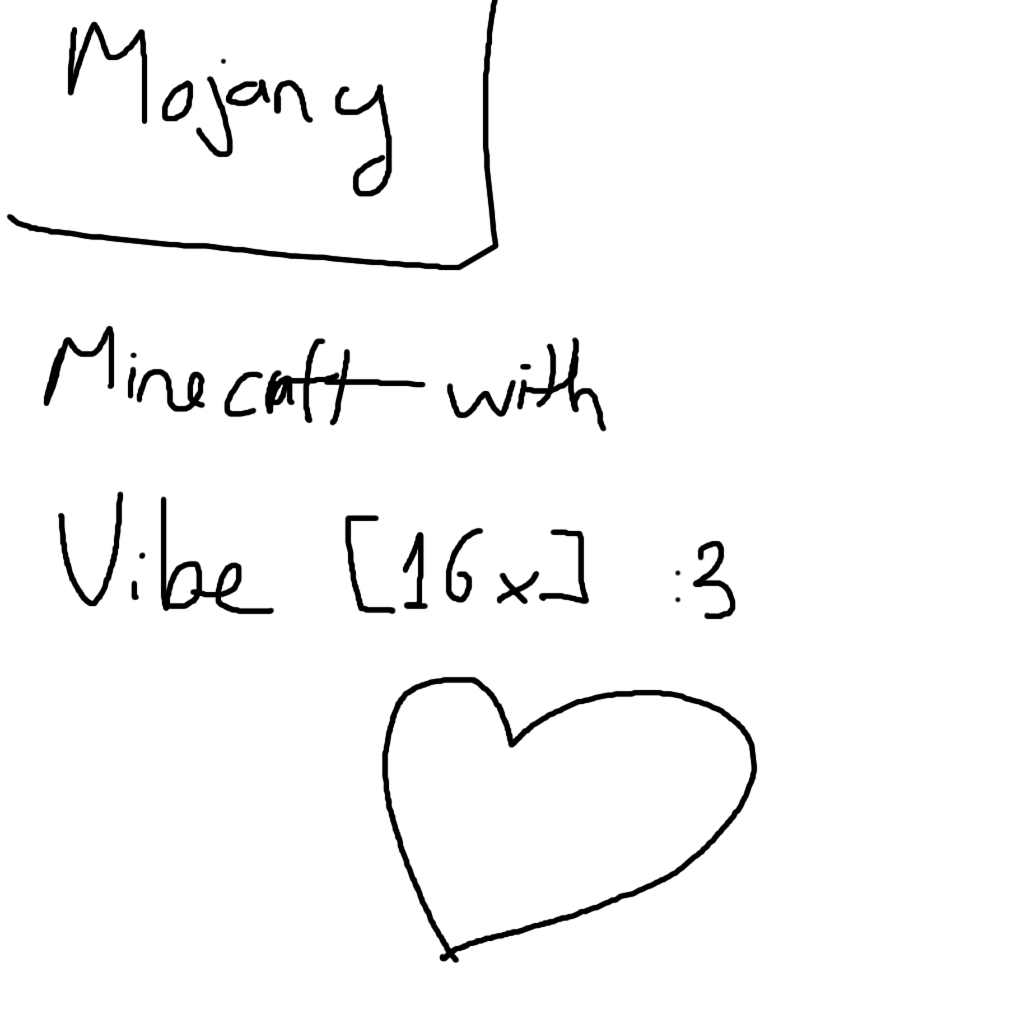 Mojang
Minecraft with
Vibe [16x] :3